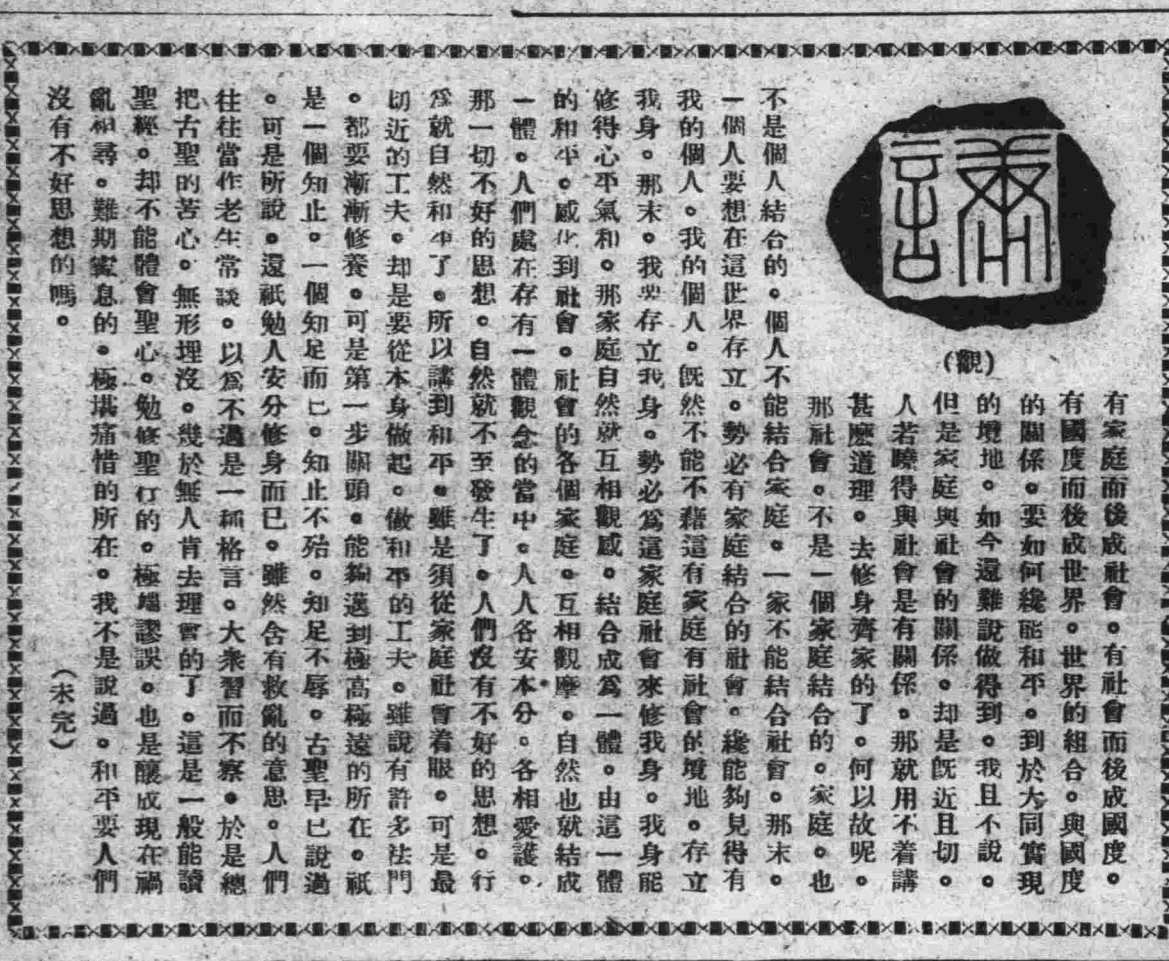 (觀)
有家庭而後成社會。有社會而後成國度。
有國度而後成世界。世界的組合。與國度
的關係。要如何纔能和平。到於大同實現
的境地。如今還難說做得到。我且不說。
但是家庭與社會的關係。却是旣近且切。
人若曉得與社會是有關係。那就用不着講
甚麽道理。去修身齊家的了。何以故呢。
那社會。不是一個家庭結合的。家庭。也
不是個人結合的。個人不能結合家庭。一家不能結合社會。那末。
一個人要想在這世界存立。勢必有家庭結合的社會。纔能夠見得有
我的個人。我的個人。旣然不能不藉這有家庭有社會的境地。存立
我身。那末。我要存立我身。勢必爲這家庭社會來修我身。我身能
修得心平氣和。那家庭自然就互相觀感。結合成爲一體。由這一體
的和平。感化到社會。社會的各個家庭。互相觀摩。自然也就結成
一體。人們處在存有一體觀念的當中。人人各安本分。各相愛護。
那一切不好的思想。自然就不至發生了。人們沒有不好的思想。行
爲就自然和平了。所以講到和平。雖是須從家庭社會着眼。可是最
切近的工夫。却是要從本身做起。做和平的工夫。雖說有許多法門
。都要漸漸修養。可是第一步關頭。能夠邁到極高極遠的所在。祇
是一個知止。一個知足而已。知止不殆。知足不辱。古聖早已說過
。可是所說。還祇勉人安分修身而已。雖然含有救亂的意思。人們
往往當作老生常談。以爲不過是一種格言。大衆習而不察。於是總
把古聖的苦心。無形埋沒。幾於無人肯去理會的了。這是一般能讀
聖經。却不能體會聖心。勉修聖行的。極端謬誤。也是釀成現在禍
亂相尋。難期寧息的。極堪痛惜的所在。我不是說過。和平要人們
沒有不好思想的嗎。
(未完)